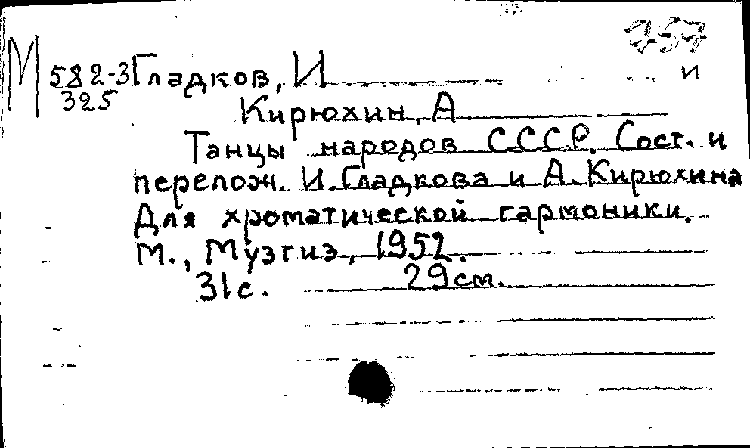 757
М 582-3 Гладков, И и
325 Кирюхин, А
Танцы народов СССР. Сост. и
перелож. И. Гладкова и А. Кирюхина
Для хроматической гармоники.
М., Музгиз, 1952.
31с. 29см.